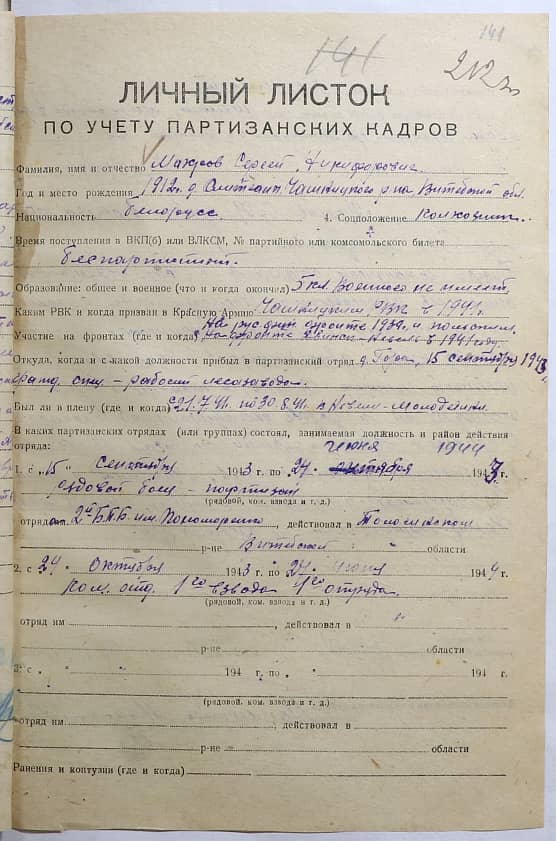 141
141
212
ЛИЧНЫЙ ЛИСТОК
ПО УЧЕТУ ПАРТИЗАНСКИХ КАДРОВ
Фамилия, имя и отчество Сергей Никифорович
Год и место рождения 1912 г. д. Чашникского р-на Витебской обл.
Национальность белорусс. 4. Соцположение Колхозник.
Время поступления в ВКП(б) или ВЛКСМ, № партийного или комсомольского билета
беспартийный.
Образование: общее и военное (что и когда окончил) 5 кл. Военного не имеет.
Каким РВК и когда призван в Красную Армию Чашникским РВК в 1941 г.
На фронте 1939 г. и
Участие на фронтах (где и когда) На фронте в 1941 году
Откуда, когда и с какой должности прибыл в партизанский отряд д. Гора, 15 сентября 1943
- рабочий лесозавода.
Был ли в плену (где и когда) с 21.7.41. по 30.8.41. в
В каких партизанских отрядах (или группах) состоял, занимаемая должность и район действия
отряда: июня 1944
1. с „15 " сентября 1943 г. по „27 " октября 1943 г.
рядовой боец - партизан
(рядовой, ком. взвода и т. д.)
отряд 2й БПБ им. Пономаренко, действовал в Толочинском
р-не Витебской области
2. с 24 " октября 1943 г. по „27 " июня 1944 г.
Ком. отд. 1го взвода 1го отряда
(рядовой, ком. взвода и т. д.)
отряд им , действовал в "
р-не области
3. с " " 194 г. по " " 194 г.
(рядовой, ком. взвода и т. д.)
отряд им. , действовал в
р-не области
Ранения и контузии (где и когда)